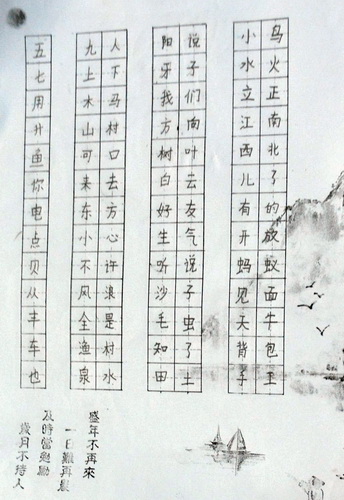 鸟火正南北了的放蚁面牛包王
小水立江西儿有开蚂见天背手
说子们向叶去友气说子虫了土
阳牙我方树白好生听沙毛知田
人下马村口去方心许浪是村水
九上木山可来东小不风全渔泉
五七用升鱼你电点贝从丰车也
盛年不再來
一日難再晨
及時當勉勵
歲月不待人